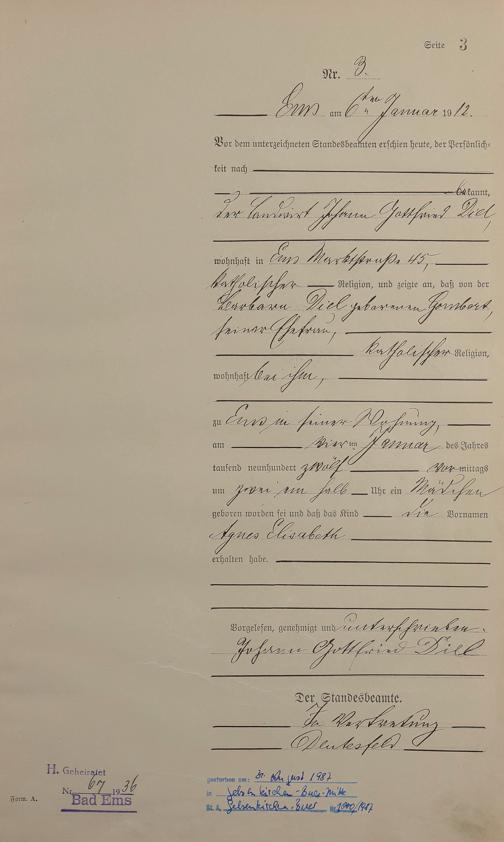 Seite 3
Nr. 3.
Ems am 6ten Januar 1912.
Vor dem unterzeichneten Standesbeamten erschien heute, der Persönlich-
keit nach
bekannt,
der Landwirt Johann Gottfried Diel,
wohnhaft in Ems Marktstraße 45,
katholischer Religion, und zeigte an, daß von der
Barbara Diel geborenen Gombert,
seiner Ehefrau,
katholischer Religion,
wohnhaft bei ihm,
zu Ems in seiner Wohnung,
am vierten Januar des Jahres
tausend neunhundert zwölf vormittags
um zwei ein halb Uhr ein Mädchen
geboren worden sei und daß das Kind die Vornamen
Agnes Elisabeth
erhalten habe.
Vorgelesen, genehmigt und unterschrieben.
Johann Gottfried Diel
Der Standesbeamte.
In Vertretung
H. Geheiratet
Nr. 67 1936
Bad Ems
Form. A.
gestorben am: August 1987
in Gelsenkirchen-Buer-Mitte
St. A. Gelsenkirchen-Buer Nr. /1987